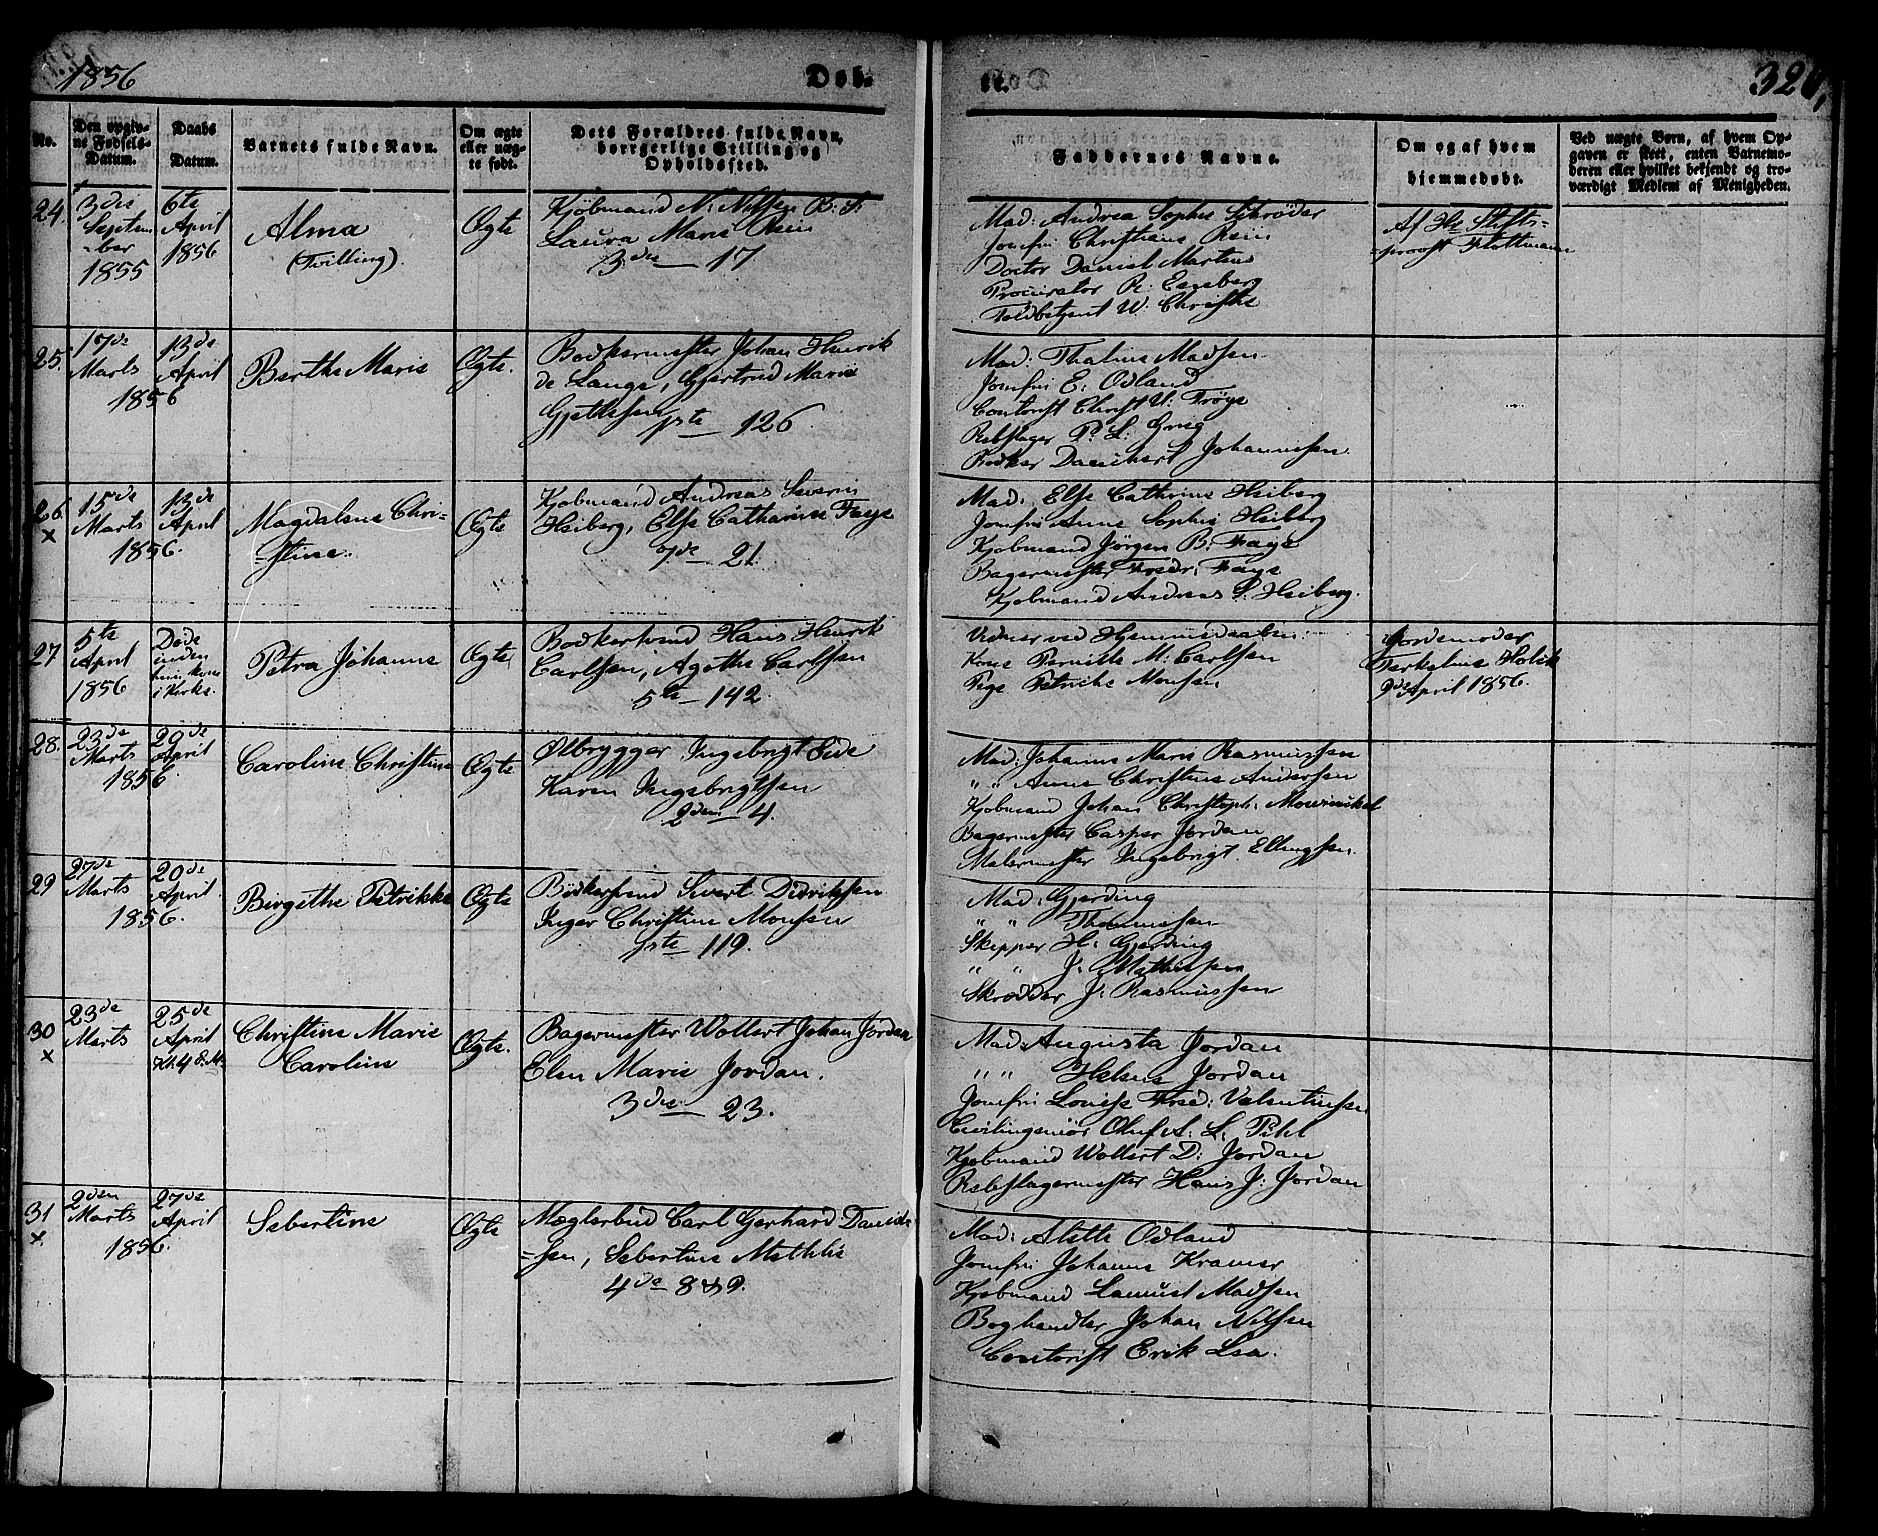 1856
Døb-
te.
326,
No.
Den opgiv-
ne Fødsels-
Datum.
Daabs
Datum.
Barnets fulde Navn.
Om ægte
eller uæg-
te født.
Dets Forældres fulde Navn,
borgerlige Stilling og
Opholdssted.
Faddernes Navne.
Om og af hvem
hjemmedøbt.
Ved uægte Børn, af hvem Op-
gaven er skeet, enten Barnemo-
deren eller hvilket bekjendt og tro-
værdigt Medlem af Menigheden.
24.
3die
Septem
-ber
1855
6te
April
1856
Alma
(Tvilling).
Ægte
Kjøbmand N: Nilssen B: S:
Laura Marie
3die 17
Mad: Andrea Sophie Schrøder
Jomfru Christiane
Doctor Daniel Martens
Procurator R:
Toldbetjent W: Christie
Af Hr Stifts-
-provst
25.
17de
Marts
1856
13de
April
Berthe Marie
Ægte.
Bødkermester Johan Henrik
de Lange, Gjertrud Marie
Gjetlesen
1ste 126
Mad: Thaline Madsen
Jomfru E: Odland
Contorist Christ U: Frøge
Rebslager P: L: Grieg
Bødker Danchert Johannessen.
26.
×
15de
Marts
1856.
13de
April
Magdalene Chri-
-stine.
Ægte
Kjøbmand Andreas Severin
Heiberg, Else Catharine Faye
7de 21.
Mad: Else Cathrine Heiberg
Jomfru Anne Sophie Heiberg
Kjøbmand Jørgen B: Faye
Bagermester Fredr: Faye
Kjøbmand Andreas S: Heiberg.
27
5te
April
1856
Døde
inden
hun kom
i Kirke.
Petra Johanne
Ægte
Bødkersvend Hans Henrik
Carlsen, Agethe Carlsen
5te 142.
Vidner ved Hjemmedaaben:
Kone Pernille M: Carlsen
Pige Petrikke Monsen
Jordemoder
Terkeline Holck
9de April 1856.
28.
23de
Marts
1856.
20de
April
Caroline Christine
Ægte
Ølbrygger Ingebrigt Eide
Karen Ingebrigtsen
2den 4.
Mad: Johanne Marie Rasmussen
" " Anne Christine Andersen
Kjøbmand Johan Christoph: Mowinckel
Bagermester Casper Jordan
Malermester Ingebrigt Ellingsen.
29
27de
Marts
1856.
20de
April
Birgethe Petrikke
Ægte
Bødkersvend Sivert Didriksen
Inger Christine Monsen
1ste 119.
Mad: Gjerding
" " Thommesen
Skipper H: Gjerding
" " J: Mathiesen
Skrædder J: Rasmussen
30
×
23de
Marts
25de
April
Kl. 4 E.M.
Christine Marie
Caroline
Ægte.
Bagermester Wollert Johan Jordan
Elen Marie Jordan.
3die 23.
Mad: Augusta Jordan
" " Helene Jordan
Jomfru Louise Fred: Valentinsen
Civilingeniør Oluf A: L: Pihl
Kjøbmand Wollert D: Jordan
Rebslagermester Hans J: Jordan
31
×
2den
Marts
1856.
27de
April
Sebertine
Ægte
Mæglerbud Carl Gerhard Daniel-
-sen, Sebertine Mathilde
4de 8 & 9.
Mad: Alette Odland
Jomfru Johanne Kramer
Kjøbmand Madsen
Boghandler Johan Nilsen
Contorist Erik Lea.